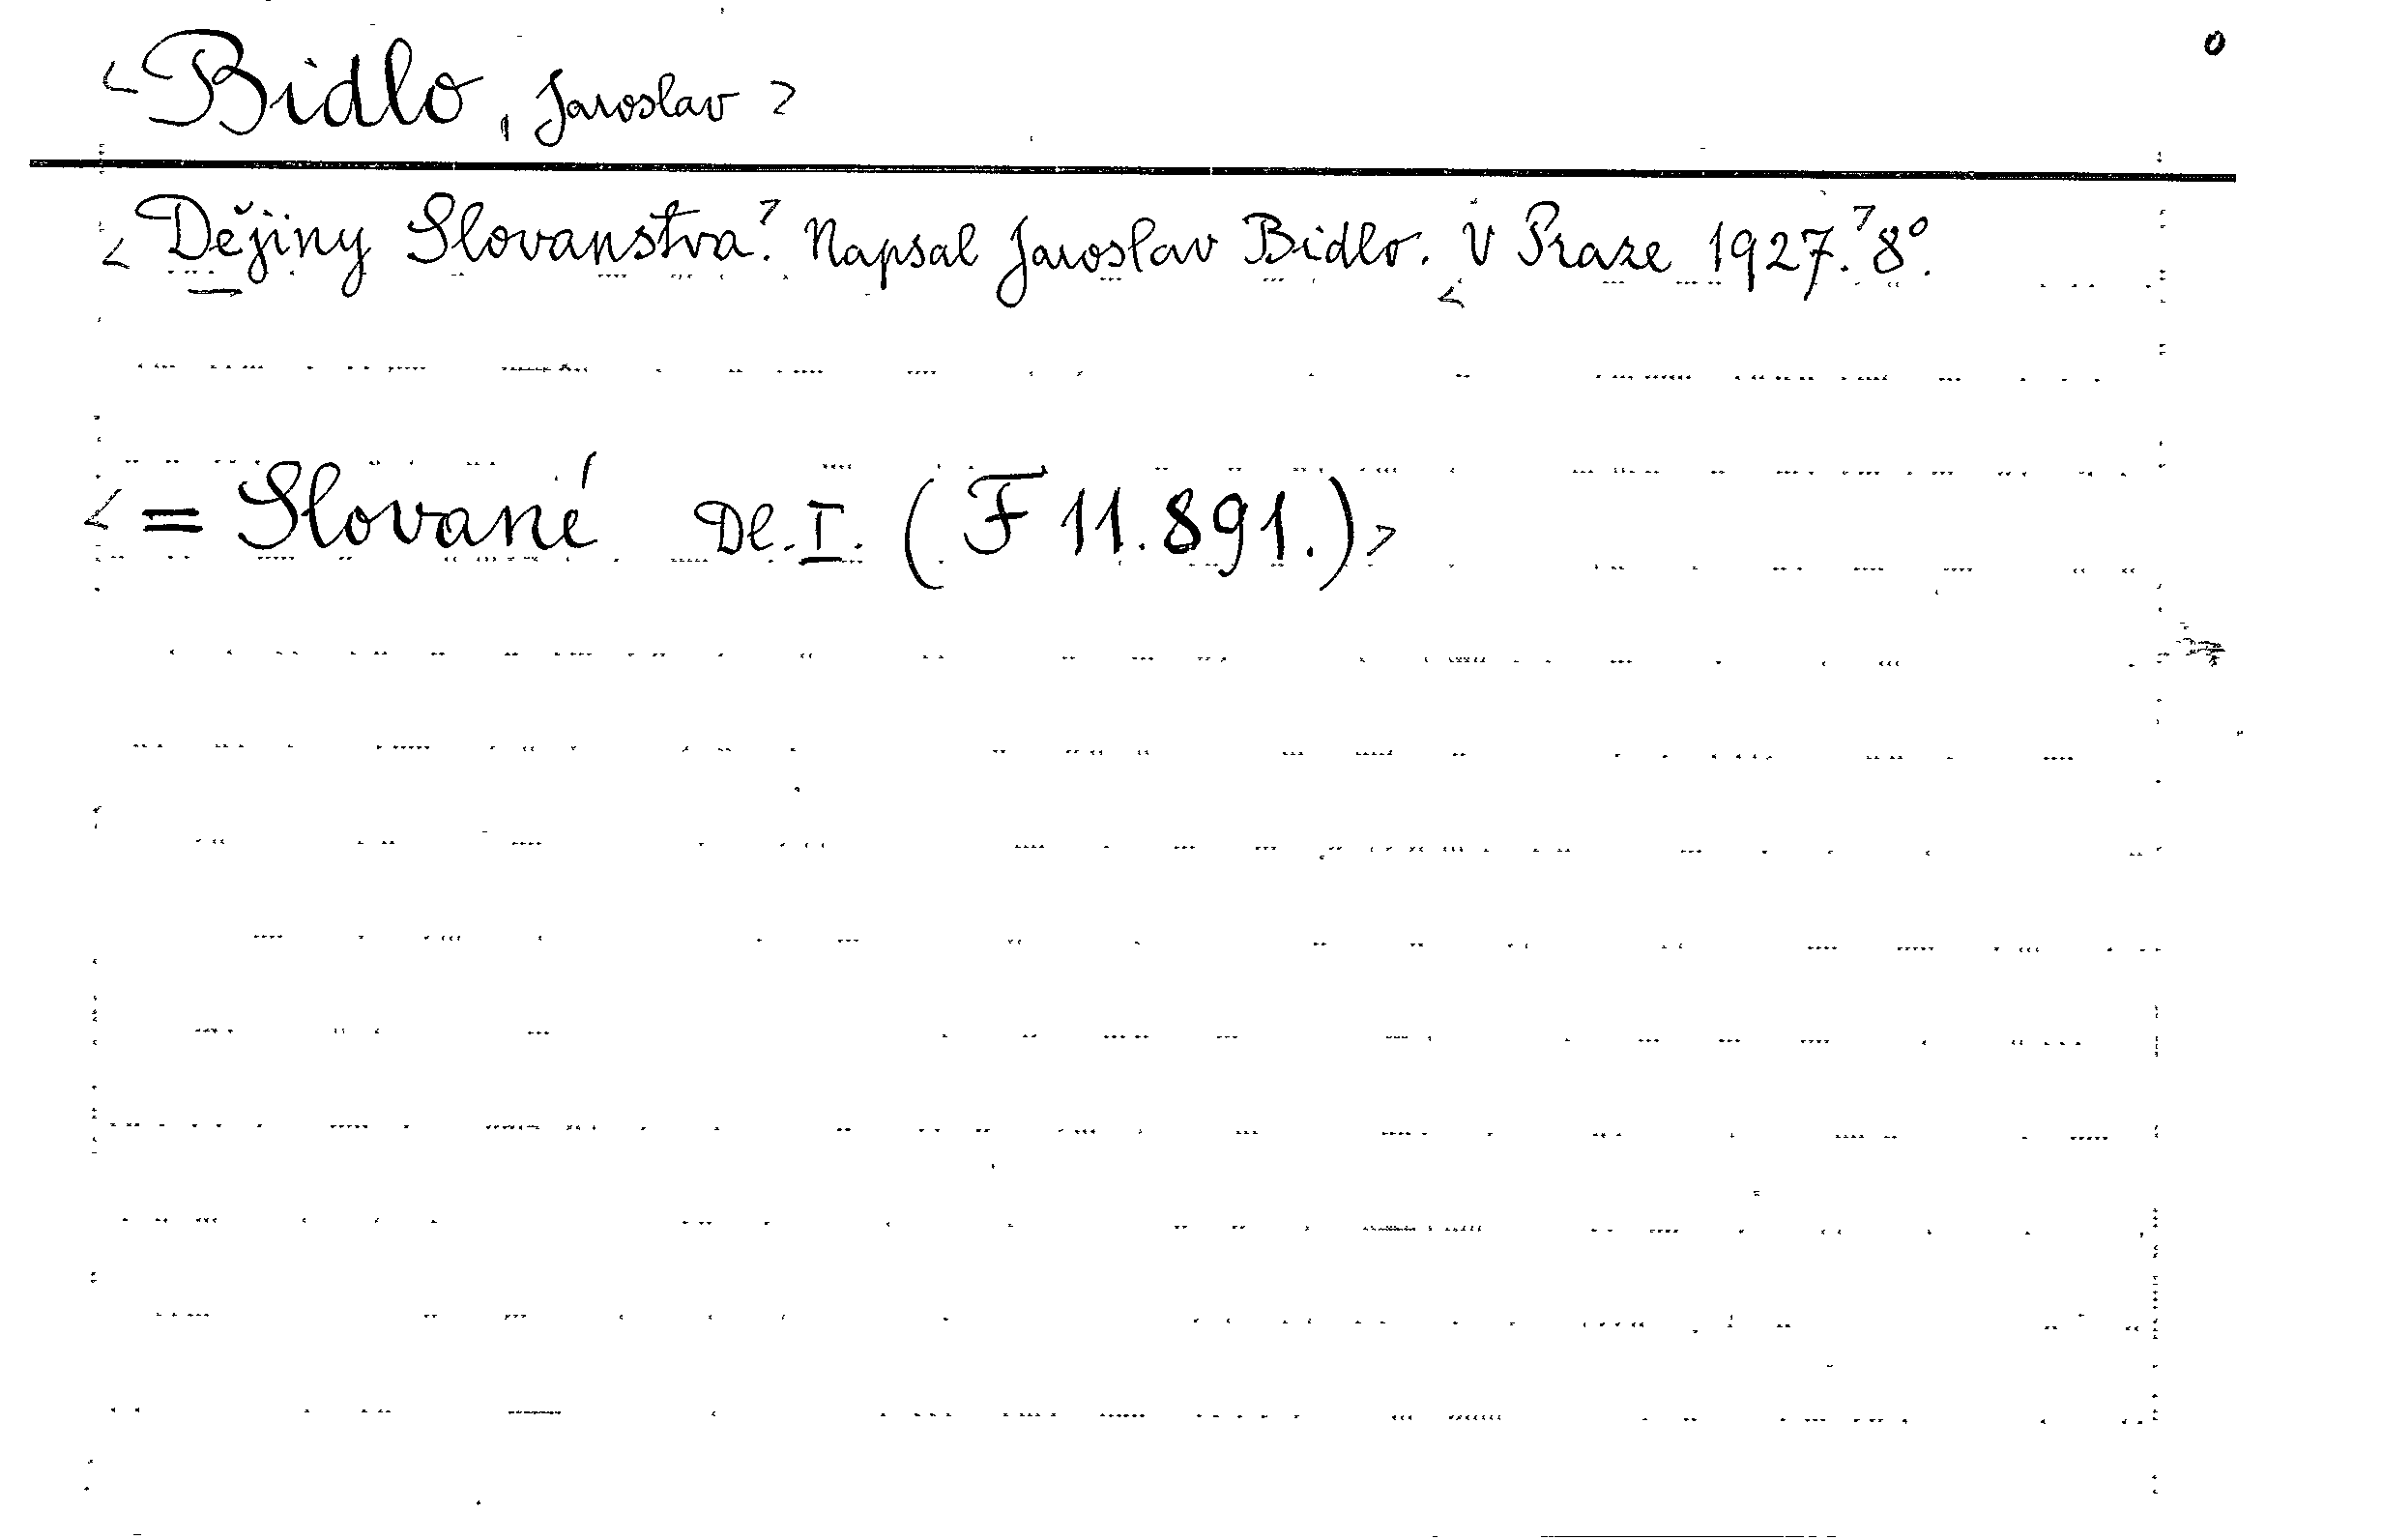 <Bidlo, Jaroslav> 0
<Dějiny Slovanstva.> Napsal Jaroslav Bidlo. <V Praze 1927.> 8°.
<= Slované Dl. I. (F 11.891.)>